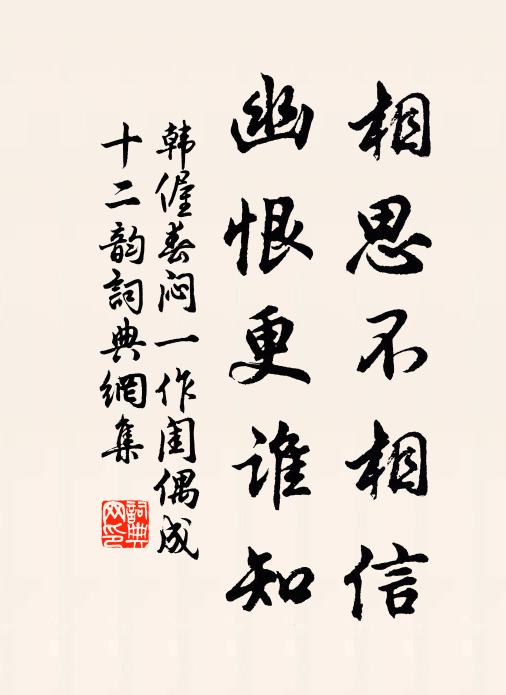 相思不相信
幽恨更谁知
韩偓春闷一作闺偶成
十二韵詞典網集
詞典
网印